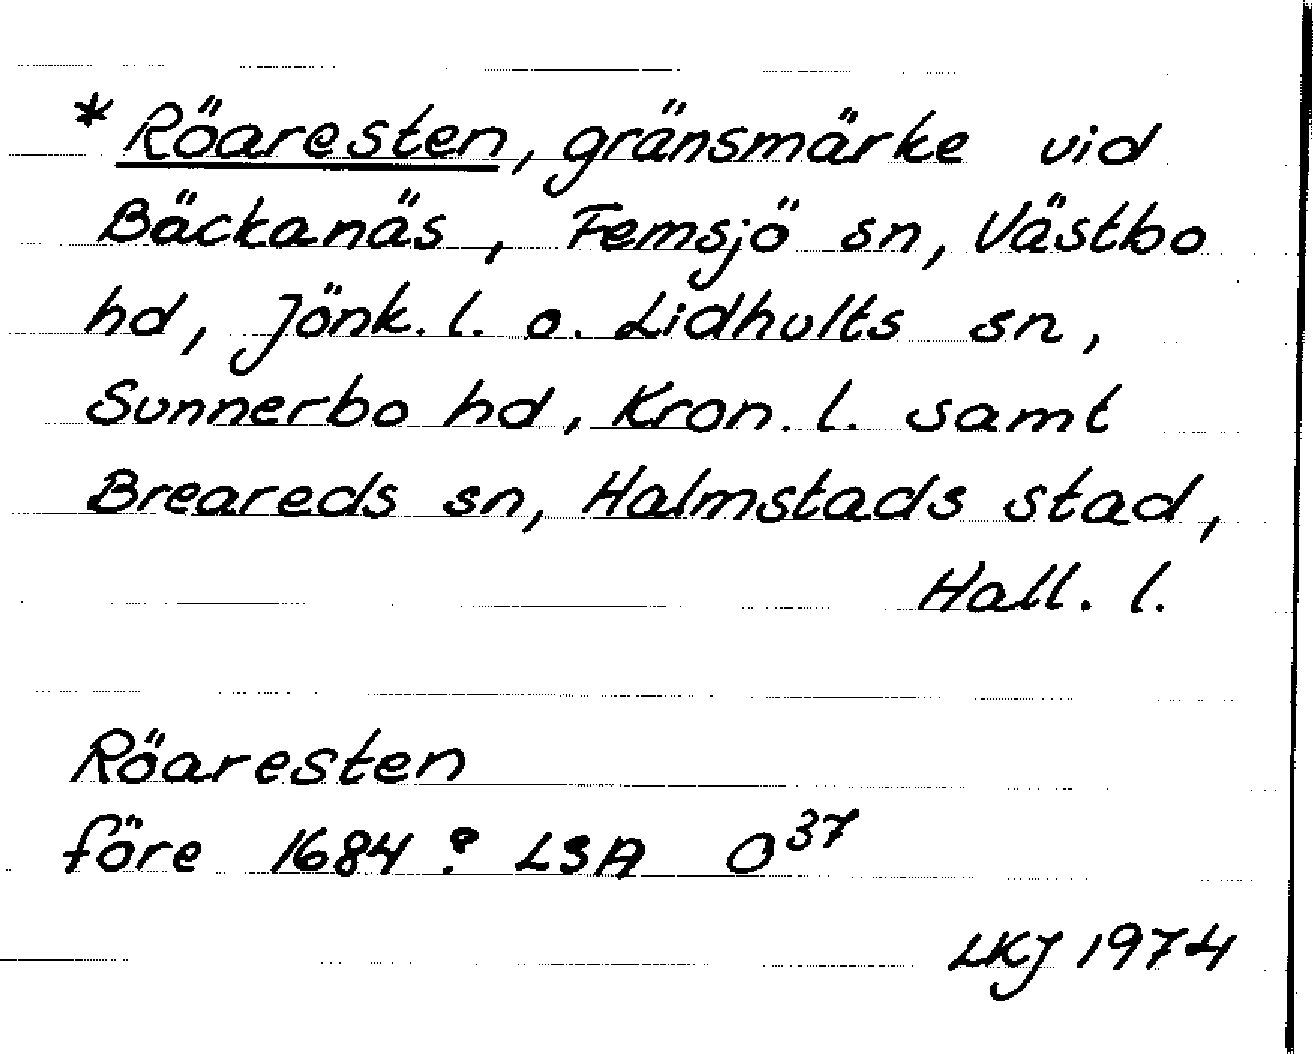 * Röaresten, gränsmärke vid
Bäckanäs, Femsjö sn, Västbo
hd, Jönk. l. o. Lidhults sn,
Sunnerbo hd, Kron. l. samt
Breareds sn, Halmstads stad,
Hall. l.
Röaresten
före 1684? LSA O³⁷
LKJ 1974